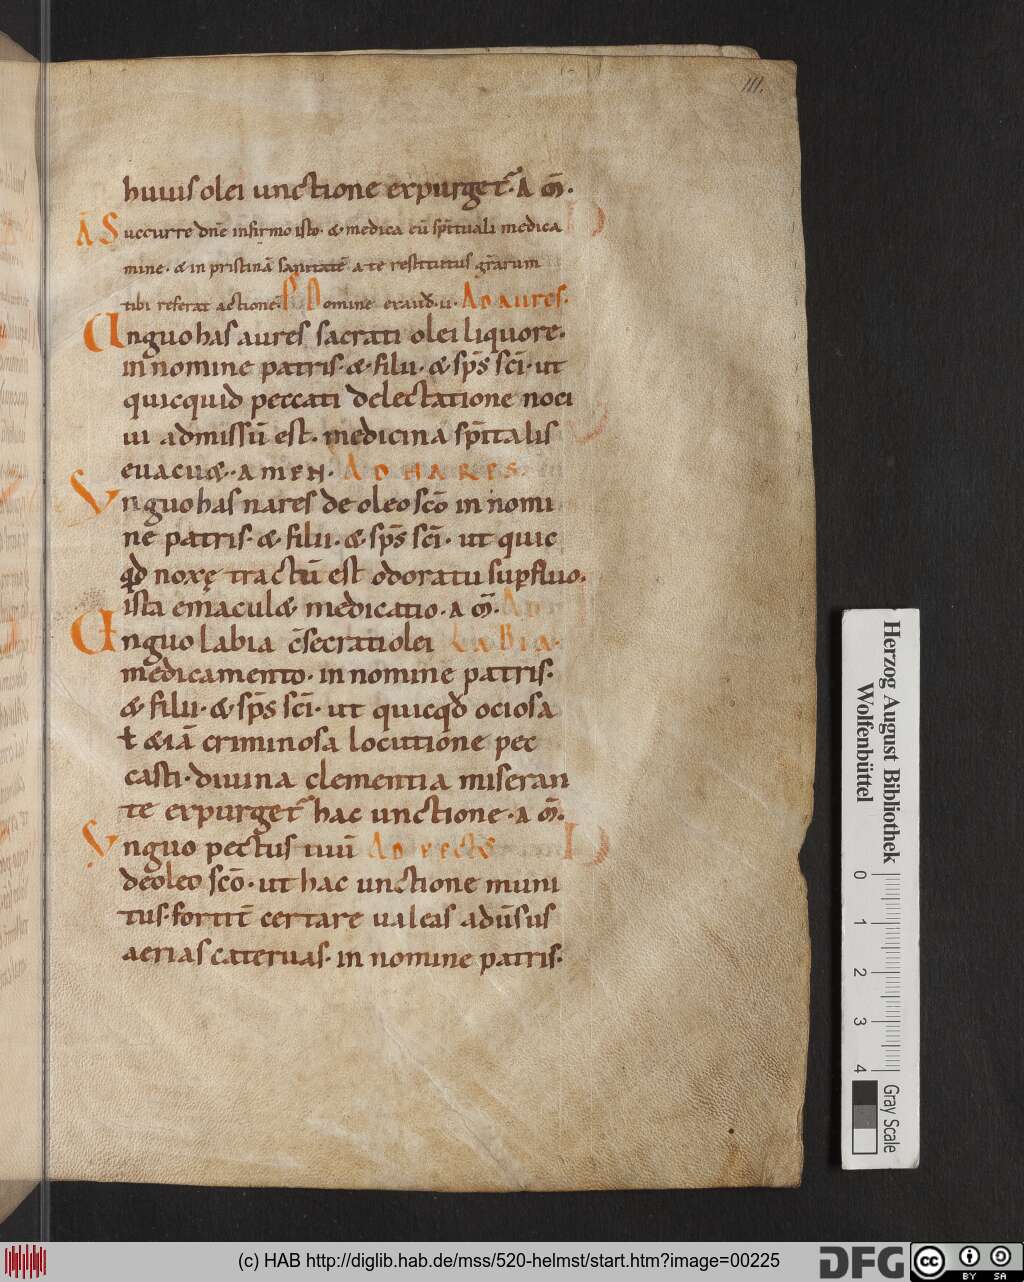 111.
huius olei unctione expurget᷑. A m̄.
Ā Succurre dn̄e infirmo isto. & medica eū sp̄ituali medica
mine. & in pristinā sanitatē a te restitutus gr̄arum
tibi referat actione. Ps Domine exaud. Ad aures.
Unguo has aures sacrati olei liquore.
in nomine patris. & filii. & sp̄s sc̄i. ut
quicquid peccati delectatione noci
ui admissū est. medicina sp̄italis
euacu&. amen. Ad nares.
Unguo has nares de oleo sc̄o in nomi
ne patris. & filii. & sp̄s sc̄i. ut quic
qd noxę tractū est odoratu supfluo.
ista emacul& medicatio. a m̄. Ad
Unguo labia c̄secrati olei labia.
medicamento. in nomine patris.
& filii. & sp̄s sc̄i. ut quicqd ociosa
ł &iā criminosa locutione pec
casti. diuina clementia miseran
te expurget᷑ hac unctione. a m̄.
Unguo pectus tuū Ad pects
de oleo sc̄o. ut hac unctione muni
tus. fortit̄ certare ualeas adūsus
aerias cateruas. in nomine patris.
Herzog August Bibliothek
Wolfenbüttel
0 1 2 3 4
Gray Scale
(c) HAB http://diglib.hab.de/mss/520-helmst/start.htm?image=00225
DFG
cc BY SA